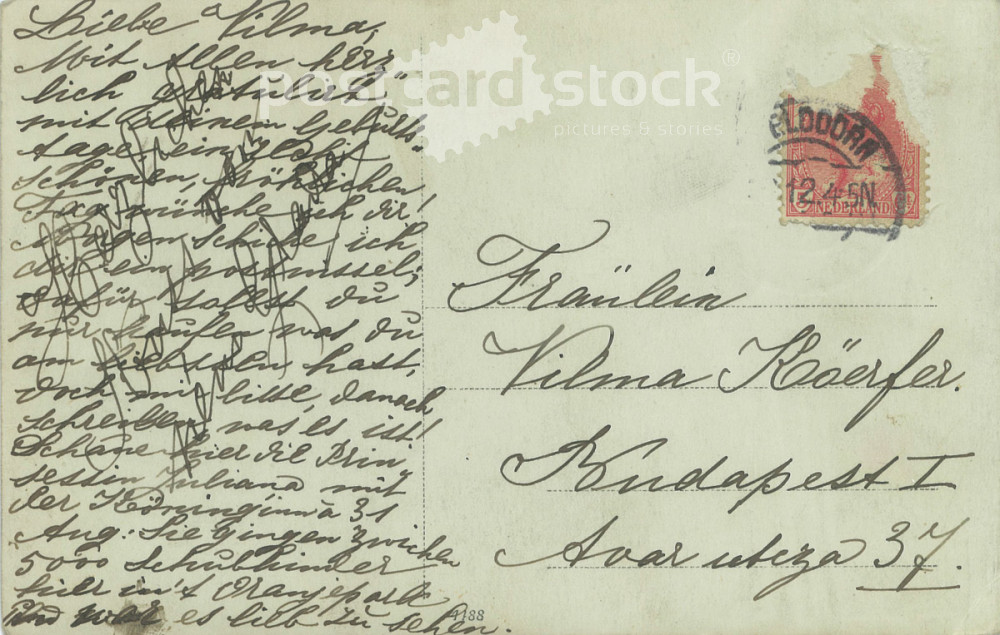 Liebe Vilma,
Mit Allen herz
lich gratulirt
mit deinem Geburts
tage, ein Recht
schönen, fröhlichen
Tag wünsche ich dir!
morgen schicke ich
dir ein postwissel,
dafür sollst du
nur kaufen was du
am liebsten hast,
doch mir bitte, danach
schreiben was es ist!
Schaue hier die Prin
sessin Juliana mit
der Köninginn à 31
Aug: Sie gingen zwichen
5000 Schulkinder
hier in't Oranjepark
und war es lieb zu sehen.
postcard stock®
pictures & stories
ELDOORN
12.4-5N
NEDERLAND
Fräulein
Vilma Köerfer.
Budapest I
Avar utcza 37.
4188